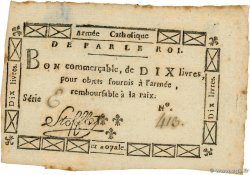 Armée Catholique
DE PAR LE ROI.
BON commerçable, de DIX livres,
pour objets fournis à l'armée,
remboursable à la paix.
Série
N°.
413.
et royale.
Dix livres
Dix livres